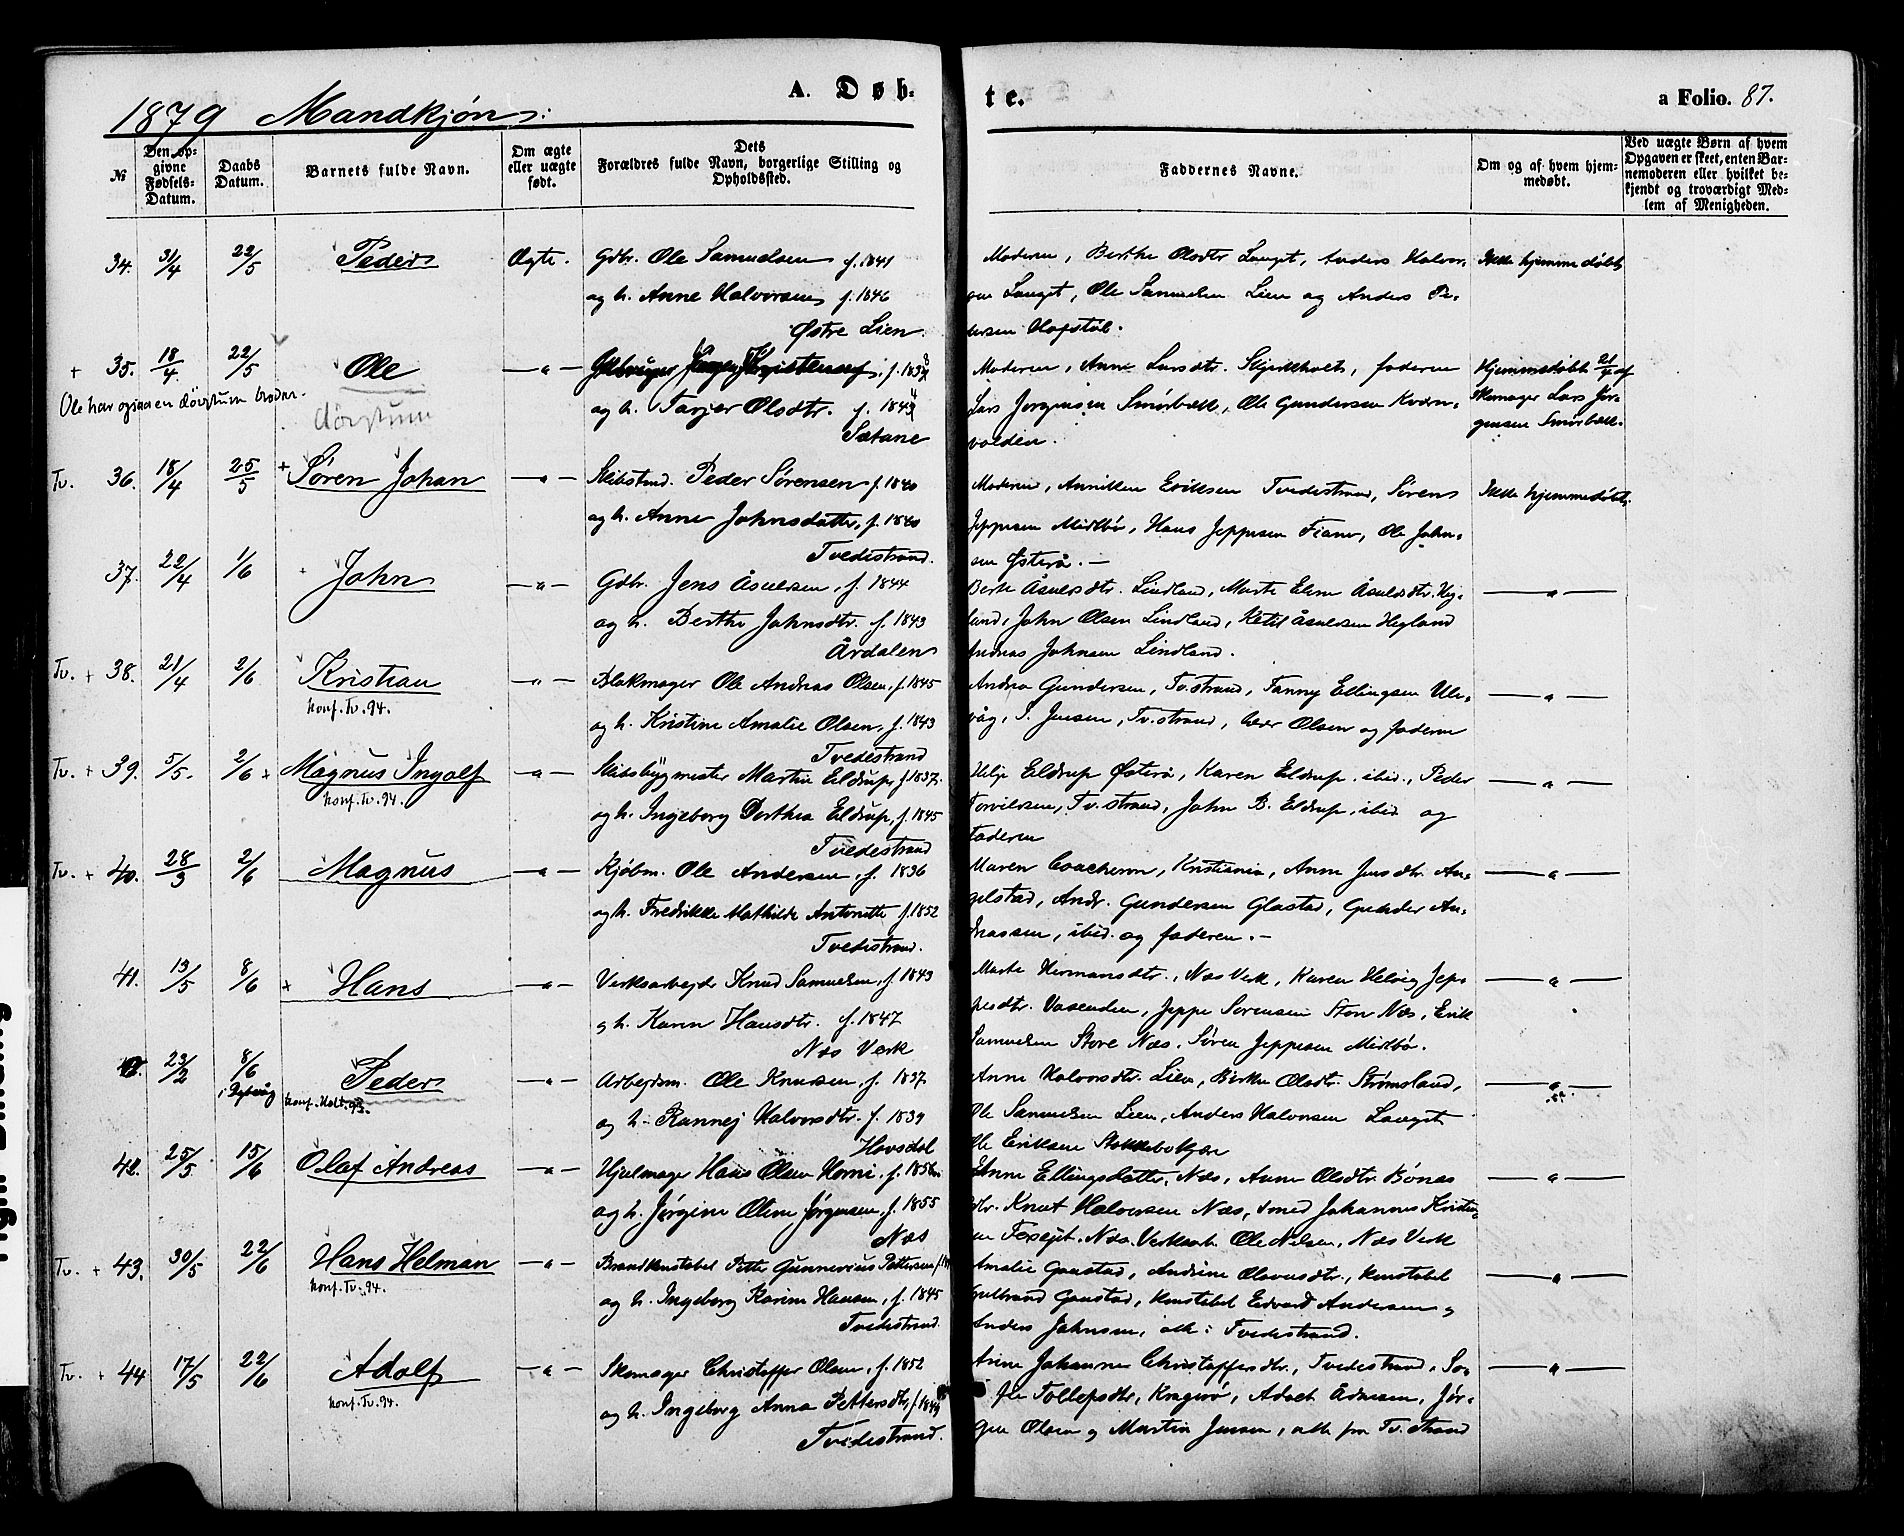 1879 Mandkjøn.
A. Døb-
te.
a Folio. 87.
№
Den op-
givne
Fødsels-
Datum.
Daabs
Datum.
Barnets fulde Navn.
Om ægte
eller uægte
født.
Dets
Forældres fulde Navn, borgerlige Stilling og
Opholdssted.
Faddernes Navne.
Om og af hvem hjem-
medøbt.
Ved uægte Børn af hvem
Opgaven er skeet, enten Bar-
nemoderen eller hvilket be-
kjendt og troværdigt Med-
lem af Menigheden.
34. 31/4 22/5 Peder Ægte. Gdbr. Ole Samuelsen f. 1841
og h. Anne Halvorsen f. 1846
Østre Lien
Moderen, Berthe Olsdtr Lauget, Anders Halvor-
sen Lauget, Ole Samuelsen Lien og Anders Pe-
dersen Hofstøl.
Ikke hjemmedøbt
+ 35. 18/4 22/5 Ole — " — Jørgen Kristensen f.
Ole har ogsaa en døvstum broder.
døvstum
og h. Tarjer Olsdtr. f.
Sætane
Moderen, Anne Larsdtr. Skjerkholt, faderen
Lars Jørgensen Smörbæk, Ole Gundersen Kvern-
volden.
Hjemmedøbt 21/4 af
Skomager Lars Jør-
gensen Smörbæk.
Tv. 36. 18/4 25/5 + Søren Johan — " — Skibstmd. Peder Sörensen f. 1840
og h. Anne Johnsdatter, f. 1840
Tvedestrand.
Moderen, Anniken Eriksen Tvedestrand, Sørens
Jeppesen Midtbø, Hans Jeppesen Fiane, Ole John-
sen Østerå. —
Ikke hjemmedøbt.
37. 22/4 1/6 John — " — Gdbr. Jens Åsulsen, f. 1844
og h. Berthe Johnsdtr. f. 1843
Årdalen
Berte Åsulsdtr. Lindland, Marte Elene Åsulsdtr. Heg-
lund, John Olsen Lindland, Ketil Åsulsen Hegland
Andreas Johnsen Lindland.
— " —
Tv. + 38. 21/4 2/6 Kristian — " — Blokmager Ole Andreas Olsen, f. 1845
konf. Tv. 94.
og h. Kristine Amalie Olsen, f. 1843
Tvedestrand
Andrea Gundersen, Tv.strand, Fanny Ellingsen Ule-
våg, S. Jensen, Tv.strand, Olsen og faderen
— " —
Tv. + 39. 5/5. 2/6 + Magnus Ingolf — " — Skibsbygmester Martin Eldrup, f. 1837.
konf. Tv. 94.
og h. Ingeborg Dorthea Eldrup, f. 1845
Tvedestrand
Helje Eldrup Østerå, Karen Eldrup, ibid., Peder
Torvildsen, Tv.strand, John B. Eldrup, ibid og
faderen
— " —
Tv. + 40. 28/3 2/6 Magnus — " — Kjøbm. Ole Andersen, f. 1836
og h. Fredrikke Mathilde Antonette f. 1852
Tvedestrand.
Maren Coacheron, Kristiania, Anne Jensdtr. An-
gelstad, Andr. Gundersen Glastad, Gunder An-
dreassen, ibid. og faderen. —
— " —
41. 13/5 8/6 + Hans — " — Verksarbejdr Knud Samuelsen, f. 1843
og h. Karen Hansdtr. f. 1847
Næs Verk
Marte Hermansdtr., Næs Verk, Karen Helvig Jep-
pesdtr. Vasenden, Jeppe Sorensen Store Næs, Erik
Samuelsen Store Næs, Søren Jeppesen Midtbø.
— " —
23/2 8/6 Peder — " — Arbejdsm. Ole Knudsen, f. 1837
i Dybvåg konf. Holt 93.
og h. Rannej Halvorsdtr. f. 1839
Hovsdal
Anne Halvorsdtr. Lien, Birthe Olsdtr. Strømsland,
Ole Samuelsen Lien, Anders Halvorsen Lauget
Ole Eriksen
— " —
42. 25/5 15/6 Olaf Andreas — " — Hjulmager Hans Olsen f. 1856
og h. Jørgine Oline Jørgensen, f. 1855
Næs
Anne Ellingsdatter, Næs, Anne Olsdtr. Bónas
Knut Halvorsen Næs, Smed Johannes Kristi-
Næs Verksarb. Ole Nilsen, Næs Verk
— " —
Tv. + 43. 30/5 22/6 Hans Helman — " — Brandkonstabel Petter Gunnerius Pettersen
konf. Tv. 94.
og h. Ingeborg Karine Hansen, f. 1845
Tvedestrand.
Amalie Gaustad, Andrine Olavesdtr., konstabel
Gulbrand Gaustad, konstabel Edvard Andersen og
Anders Johnsen, alle i Tvedestrand.
— " —
Tv. + 44 17/5 22/6 Adolf — " — Skomager Christoffer Olsen, f. 1852
konf. Tv. 94.
og h. Ingeborg Anna Pettersdtr,
Tvedestrand.
Johanne Christoffersdtr., Tvedestrand, So-
fie Tollefsdtr, Kragerö, Adolf Jør-
gen Olsen og Martin Jensen, alle fra Tv.strand
— " —